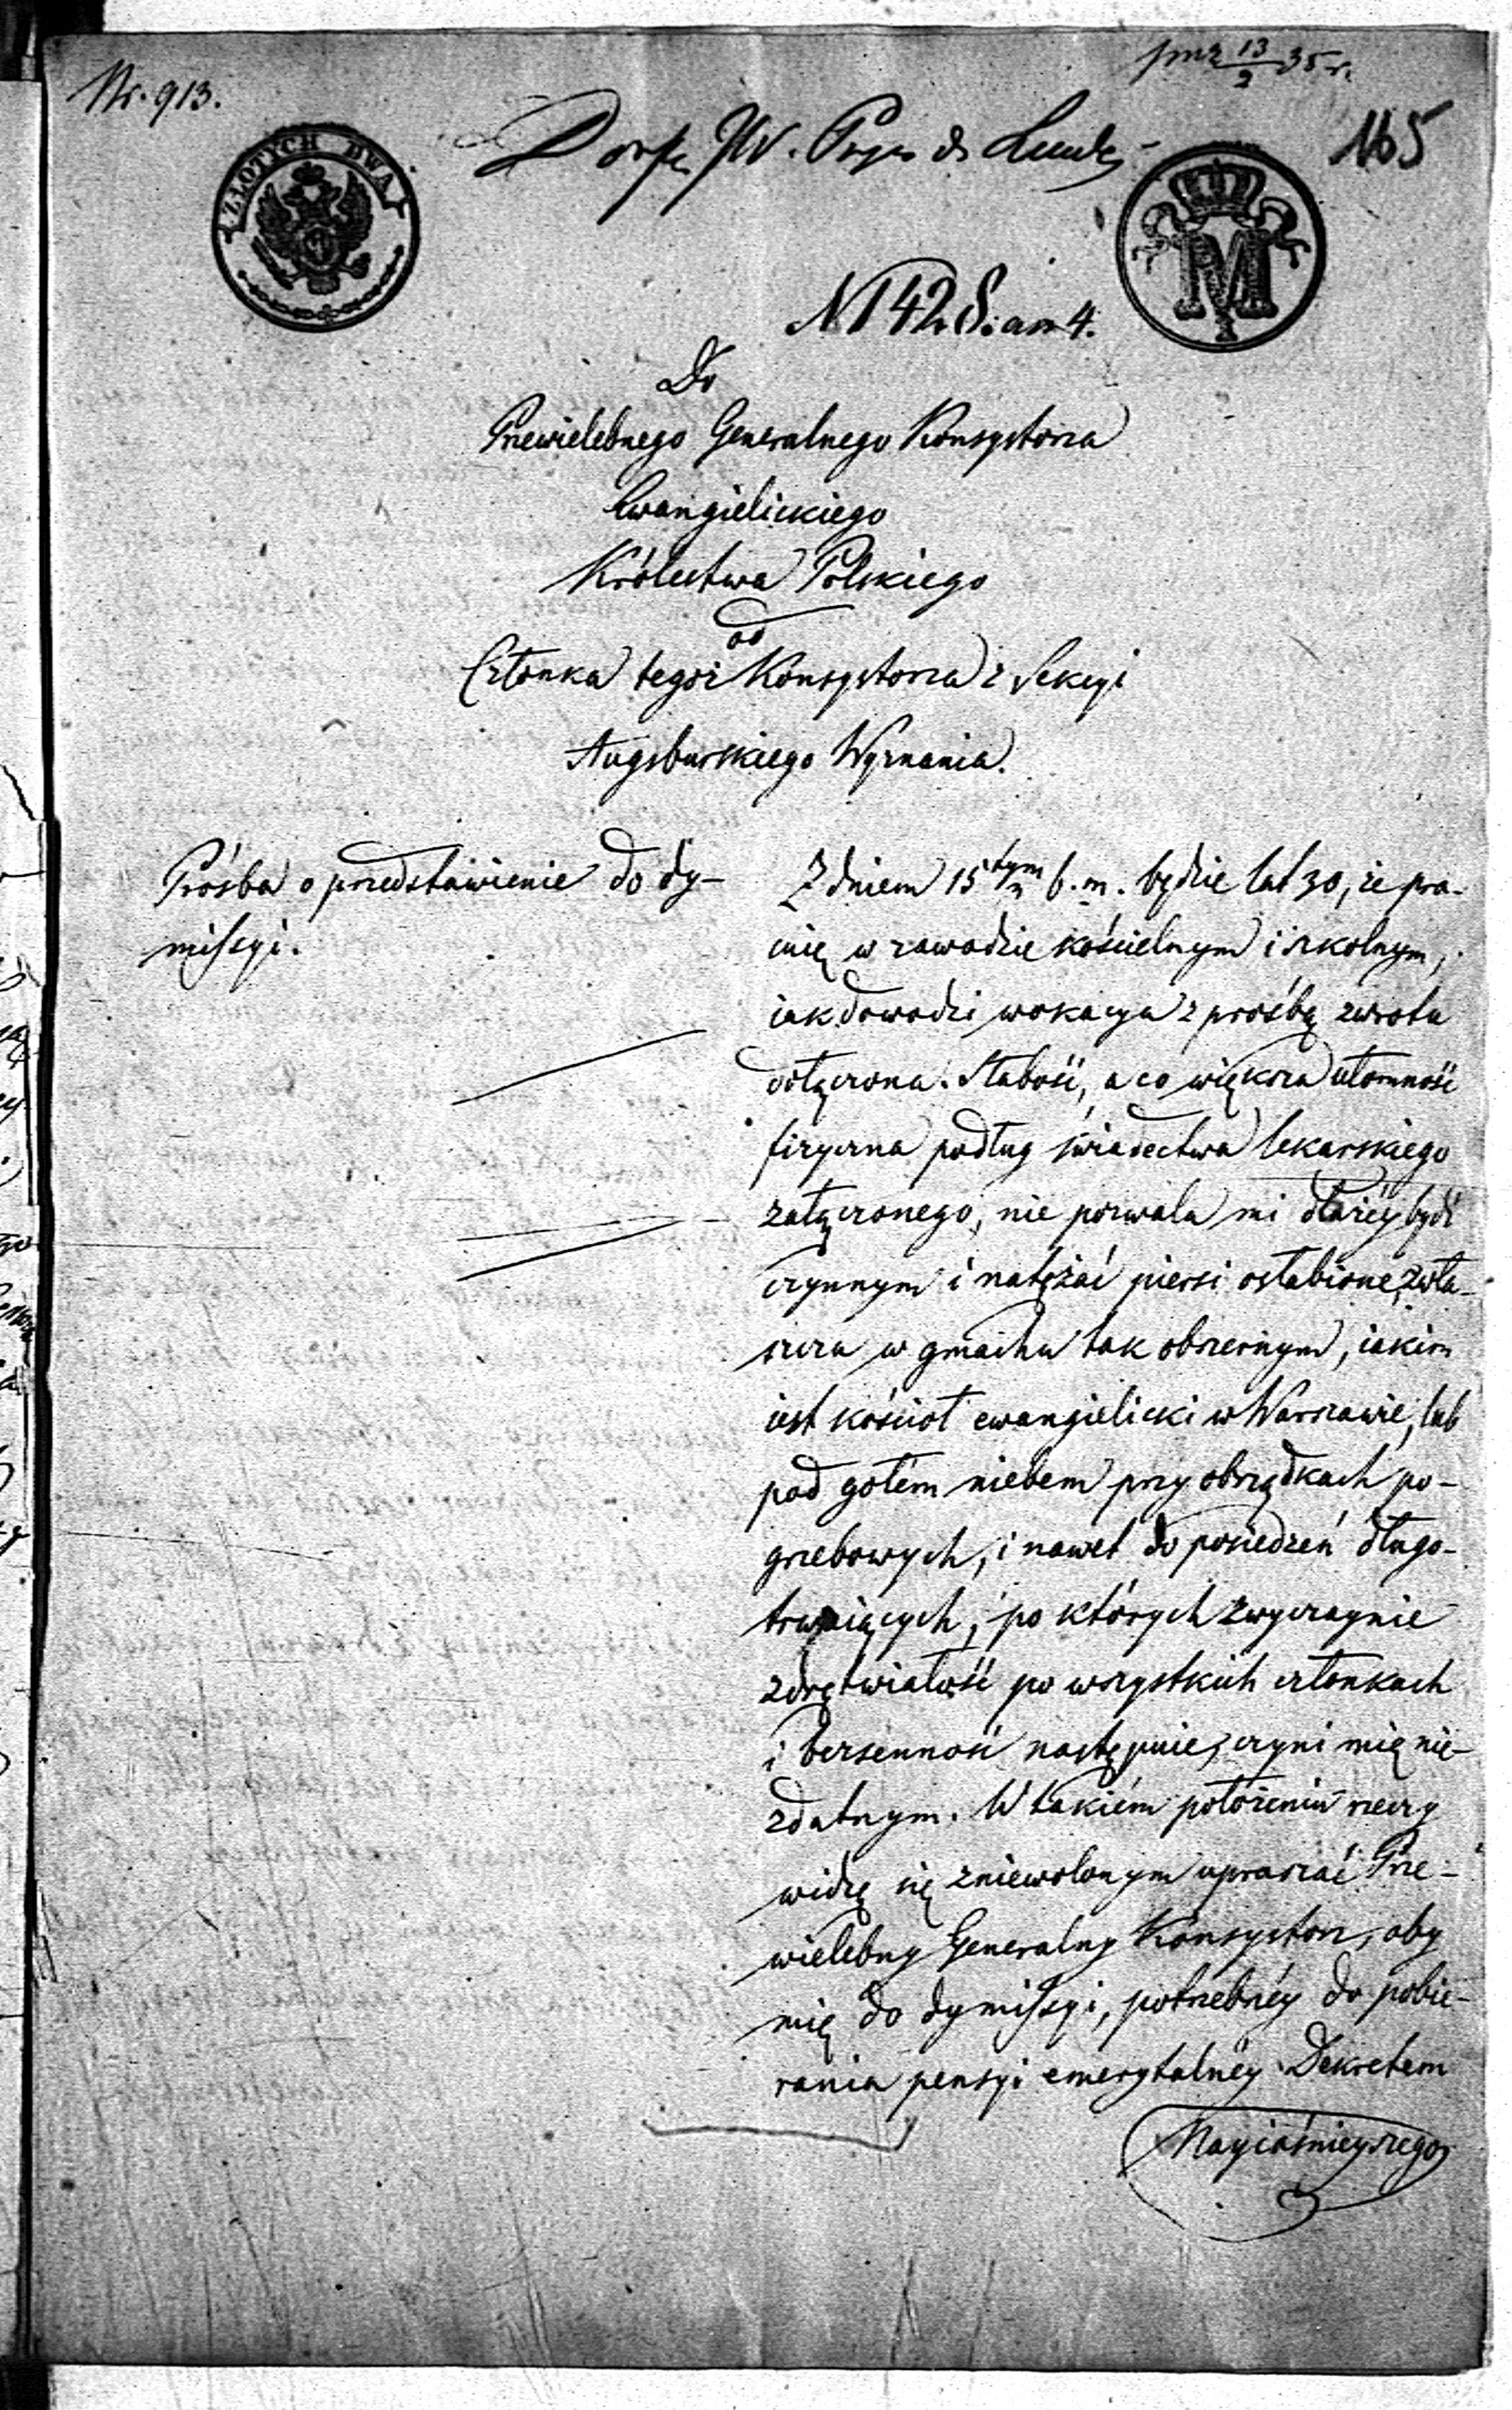 Nr. 913.
13/2 35 r.
165
ZŁOTYCH DWA
M
Do
Przewielebnego Generalnego Konsystorza
Ewangielickiego
Królestwa Polskiego
od
Członka tegoż Konsystorza z Sekcyi
Augsburskiego Wyznania.
Prośba o przedstawienie do dy-
missyi.
Z dniem 15tym b. m. będzie lat 30, że pra-
cuię w zawodzie kościelnym i szkolnym,
iak dowodzi wokacya z prośbą zwrotu
dołączona. Słabość, a co większa ułomność
fizyczna podług świadectwa lekarskiego
załączonego, nie pozwala mi dłużéy bydź
czynnym i natężać piersi osłabione, zwła-
szcza w gmachu tak obszernym, iakim
iest kościoł ewangielicki w Warszawie, lub
pod gołém niebem przy obrządkach po-
grzebowych, i nawet do posiedzeń długo-
trwaiących, po których zwyczaynie
zdrętwiałość po wszystkich członkach
i bezsenność następuie, czyni mię nie-
zdatnym. W takiém położeniu rzeczy
widzę się zniewolonym upraszać Prze-
wielebny Generalny Konsystorz, aby
mię do dymissyi, potrzebnéy do pobie-
rania pensyi emerytalnéy Dekretem
Nayiaśnieyszego